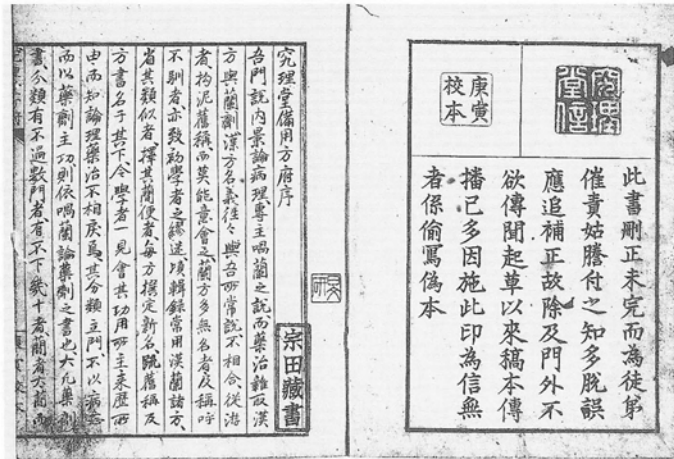 究理堂信
庚寅校本
此書刪正未完而為徒弟
催責姑謄付之知多脫誤
應追補正故除及門外不
欲傳聞起草以來稿本傳
播已多因施此印為信無
者係偷寫偽本
究理堂備用方府序
吾門說内景論病理專主喎蘭之說而藥治雜取漢
方與蘭劑漢方名義往々與吾所常說不相合從游
者拘泥舊稱而莫能意會之蘭方多無名者及稱呼
不馴者亦致初學者之繆迷頃輯錄常用漢蘭諸方
省其類似者擇其簡便者每方撰定新名既舊稱及
方書名于其下令學者一見會其功用所主来歷所
由而知論理藥治不相戾焉其分類立門不以病
而以藥劑主功則依喎蘭論藥劑之書也大凡藥劑
書分類有不過數門者有不下幾十者簡者
宗田藏書